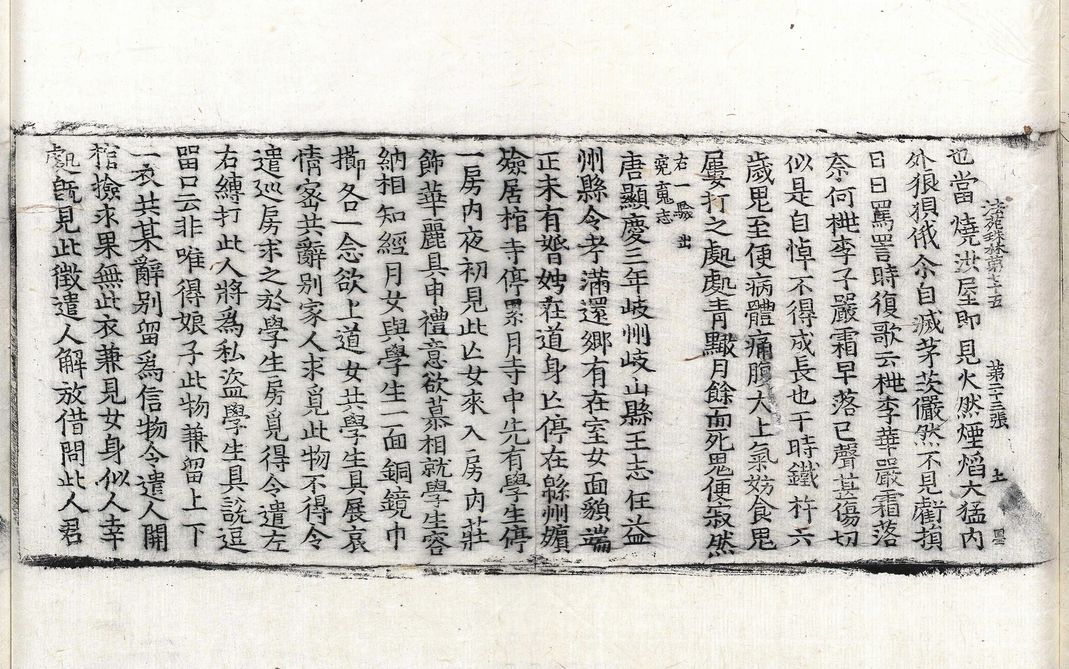 法苑珠林第七十五 第二十三張 土
也當燒洪屋即見火然煙焰大猛內
外狼狽俄介自滅茅茨儼然不見虧損
日日罵詈時復歌云桃李華嚴霜落
奈何桃李子嚴霜早落已聲甚傷切
似是自悼不得成長也于時鐵杵六
歲鬼至便病體痛腹大上氣妨食鬼
屢打之處處青黶月餘而死鬼便寂然
右一驗出
冤魂志
唐顯慶三年岐州岐山縣王志任益
州縣令考滿還鄉有在室女面貌端
正未有婚娉在道身亡停在緜州殯
殮居棺寺停累月寺中先有學生停
一房內夜初見此亡女來入房內莊
飾華麗具申禮意欲慕相就學生容
納相知經月女與學生一面銅鏡巾
擳各一念欲上道女共學生具展哀
情密共辭別家人求覓此物不得令
遣巡房求之於學生房覓得令遣左
右縛打此人將為私盜學生具說逗
留口云非唯得娘子此物兼留上下
二衣共某辭別留為信物令遣人開
棺撿求果無此衣兼見女身似人幸
處既見此徵遣人解放借問此人君